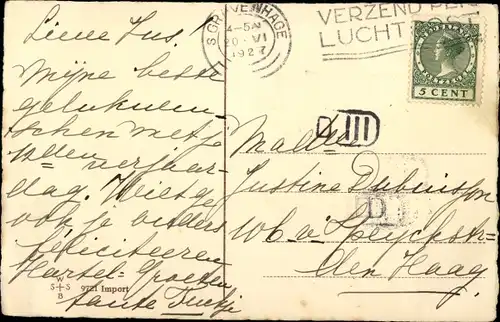 Lieve Jus!
Mijne beste
gelukwen-
schen met je
verjaar-
dag. Wiet ge
ook je ouders
feliciteeren
Hartel- Groeten
tante
W
S+S
B
9721 Import
'S GRAVENHAGE
4-5N
20 VI
1927
VERZEND PER
LUCHTPOST
5 CENT
III
D
Justine Dubuisson
v. Speyckstr-
Den Haag